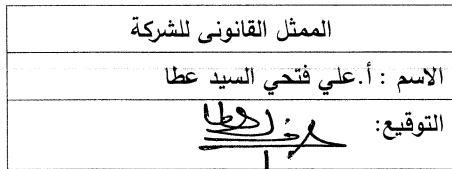 الممثل القانونى للشركة
الاسم : أ.علي فتحي السيد عطا
التوقيع: